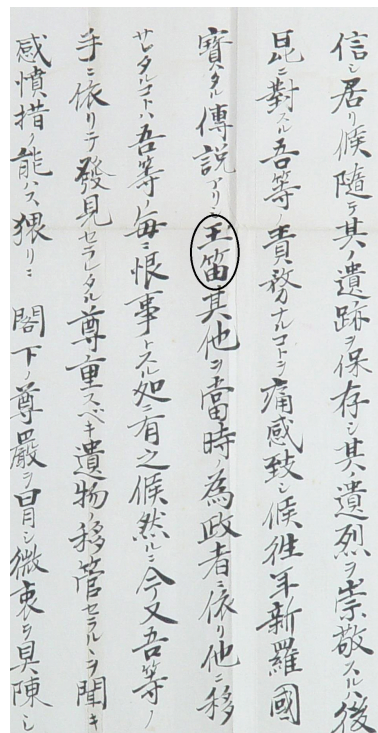 信シ居リ候隨テ其ノ遺跡ヲ保存シ其ノ遺烈ヲ崇敬スルハ後
昆ニ對スル吾等ノ責務ナルコトヲ痛感致シ候往年新羅國
寶タル傳說アリシ玉笛其他ヲ當時ノ為政者ニ依リ他ニ移
サレタルコトハ吾等ノ毎ニ恨事トスル処ニ有之候然ルニ今又吾等ノ
手ニ依リテ發見セラレタル尊重スベキ遺物ノ移管セラルヽヲ聞キ
感憤措ク能ハス猥リニ 閣下ノ尊嚴ヲ冒シ微衷ヲ具陳シ